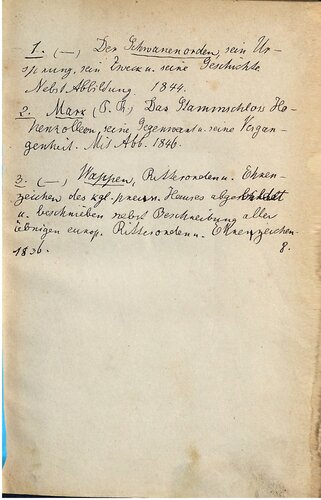 1. (—) Der Schwanenorden, sein Ur-
sprung, sein Zweck u. seine Geschichte.
Nebst Abbildung. 1844.
2. Marx (P. Ch.) Das Stammschloss Ho-
henzollern, seine Gegenwart u. seine Vergan-
genheit. Mit Abb. 1846.
3. (—) Wappen, Ritterorden u. Ehren-
zeichen des kgl. preuss. Hauses abgebildet
u. beschrieben nebst Beschreibung aller
übrigen europ. Ritterorden u. Ehrenzeichen.
1836. 8.